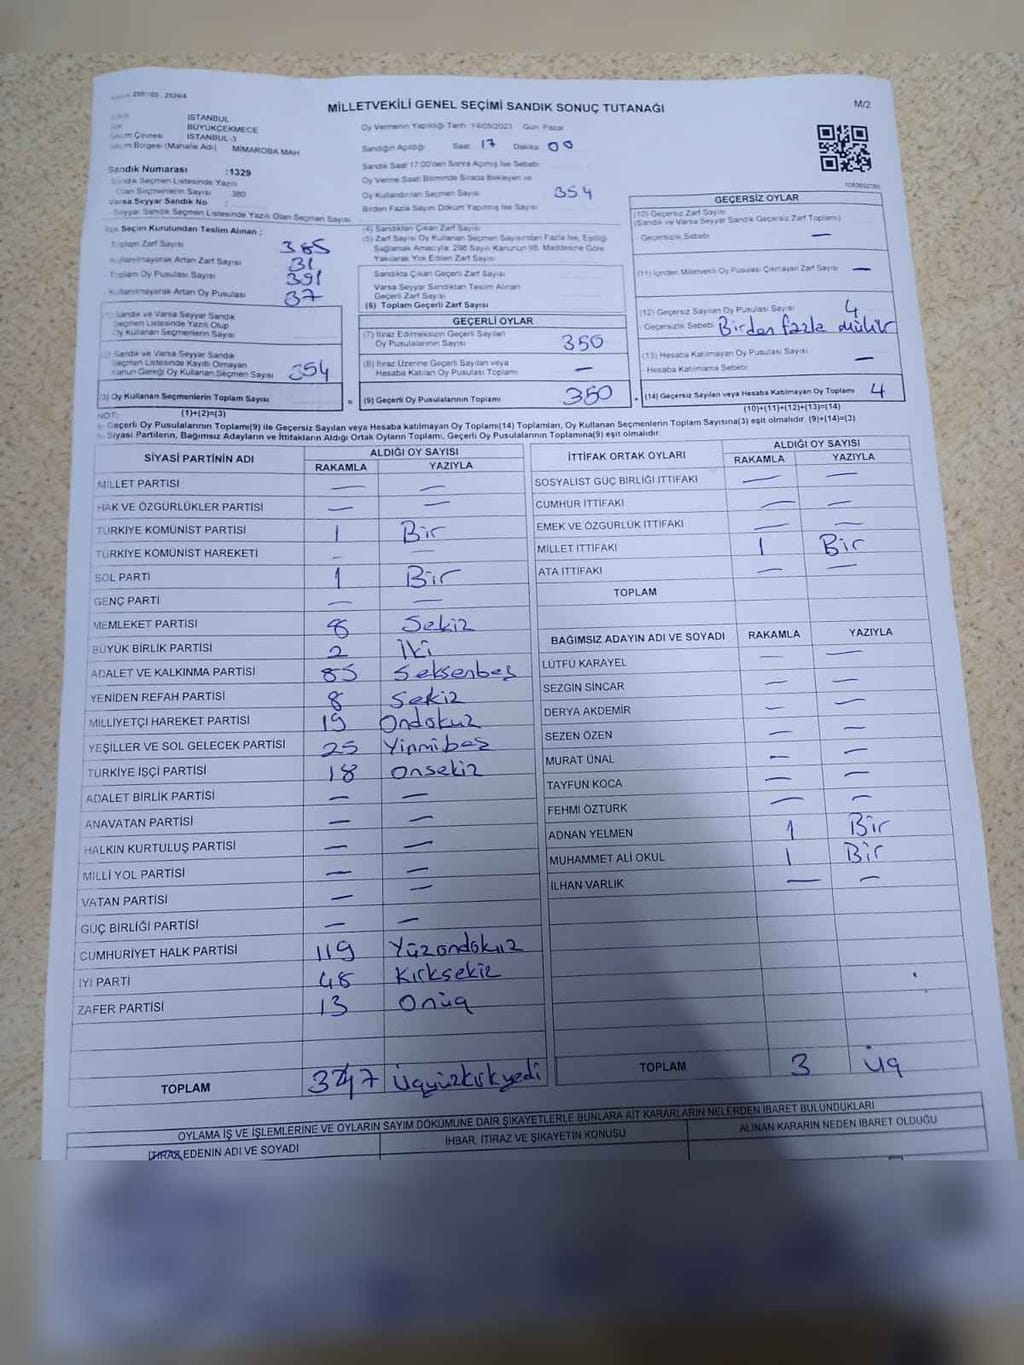 MİLLETVEKİLİ GENEL SEÇİMİ SANDIK SONUÇ TUTANAĞI
M/2
İSTANBUL
BÜYÜKÇEKMECE
Seçim Çevresi İSTANBUL-3
Seçim Bölgesi (Mahalle Adı) MİMAROBA MAH
Sandık Numarası :1329
Sandık Seçmen Listesinde Yazılı
Olan Seçmenlerin Sayısı 380
Varsa Seyyar Sandık No
Seyyar Sandık Seçmen Listesinde Yazılı Olan Seçmen Sayısı
Oy Vermenin Yapıldığı Tarih :14/05/2023 Gün :Pazar
Sandığın Açıldığı Saat 17 Dakika 00
Sandık Saat 17:00'den Sonra Açılmış İse Sebebi
Oy Verme Saati Bitiminde Sırada Bekleyen ve
Oy Kullandırılan Seçmen Sayısı 354
Birden Fazla Sayım Döküm Yapılmış İse Sayısı
İlçe Seçim Kurulundan Teslim Alınan ;
Toplam Zarf Sayısı 385
Kullanılmayarak Artan Zarf Sayısı 31
Toplam Oy Pusulası Sayısı 391
Kullanılmayarak Artan Oy Pusulası 37
(1) Sandık ve Varsa Seyyar Sandık
Seçmen Listesinde Yazılı Olup
Oy Kullanan Seçmenlerin Sayısı
(2) Sandık ve Varsa Seyyar Sandık
Seçmen Listesinde Kayıtlı Olmayan
Kanun Gereği Oy Kullanan Seçmen Sayısı 354
(3) Oy Kullanan Seçmenlerin Toplam Sayısı
(1)+(2)=(3)
(4) Sandıktan Çıkan Zarf Sayısı
(5) Zarf Sayısı Oy Kullanan Seçmen Sayısından Fazla İse, Eşitliği
Sağlamak Amacıyla, 298 Sayılı Kanunun 98. Maddesine Göre
Yakılarak Yok Edilen Zarf Sayısı
Sandıkta Çıkan Geçerli Zarf Sayısı
Varsa Seyyar Sandıktan Teslim Alınan
Geçerli Zarf Sayısı
(6) Toplam Geçerli Zarf Sayısı
GEÇERLİ OYLAR
(7) İtiraz Edilmeksizin Geçerli Sayılan
Oy Pusulalarının Sayısı 350
(8) İtiraz Üzerine Geçerli Sayılan veya
Hesaba Katılan Oy Pusulası Toplamı —
= (9) Geçerli Oy Pusulalarının Toplamı 350
GEÇERSİZ OYLAR
(10) Geçersiz Zarf Sayısı
(Sandık ve Varsa Seyyar Sandık Geçersiz Zarf Toplamı)
- Geçersizlik Sebebi —
(11) İçinden Milletvekili Oy Pusulası Çıkmayan Zarf Sayısı —
(12) Geçersiz Sayılan Oy Pusulası Sayısı 4
- Geçersizlik Sebebi Birden fazla mühür
(13) Hesaba Katılmayan Oy Pusulası Sayısı —
- Hesaba Katılmama Sebebi
+ (14) Geçersiz Sayılan veya Hesaba Katılmayan Oy Toplamı 4
(10)+(11)+(12)+(13)=(14)
NOT:
- Geçerli Oy Pusulalarının Toplamı(9) ile Geçersiz Sayılan veya Hesaba katılmayan Oy Toplamı(14) Toplamları, Oy Kullanan Seçmenlerin Toplam Sayısına(3) eşit olmalıdır. (9)+(14)=(3)
- Siyasi Partilerin, Bağımsız Adayların ve İttifakların Aldığı Ortak Oyların Toplamı, Geçerli Oy Pusulalarının Toplamına(9) eşit olmalıdır.
SİYASİ PARTİNİN ADI ALDIĞI OY SAYISI
RAKAMLA YAZIYLA
MİLLET PARTİSİ — —
HAK VE ÖZGÜRLÜKLER PARTİSİ — —
TÜRKİYE KOMÜNİST PARTİSİ 1 Bir
TÜRKİYE KOMÜNİST HAREKETİ — —
SOL PARTİ 1 Bir
GENÇ PARTİ — —
MEMLEKET PARTİSİ 8 Sekiz
BÜYÜK BİRLİK PARTİSİ 2 İki
ADALET VE KALKINMA PARTİSİ 85 Seksenbeş
YENİDEN REFAH PARTİSİ 8 Sekiz
MİLLİYETÇİ HAREKET PARTİSİ 19 Ondokuz
YEŞİLLER VE SOL GELECEK PARTİSİ 25 Yirmibeş
TÜRKİYE İŞÇİ PARTİSİ 18 Onsekiz
ADALET BİRLİK PARTİSİ — —
ANAVATAN PARTİSİ — —
HALKIN KURTULUŞ PARTİSİ — —
MİLLİ YOL PARTİSİ — —
VATAN PARTİSİ — —
GÜÇ BİRLİĞİ PARTİSİ — —
CUMHURİYET HALK PARTİSİ 119 Yüzondokuz
İYİ PARTİ 48 Kırksekiz
ZAFER PARTİSİ 13 Onüç
TOPLAM 347 Üçyüzkırkyedi
İTTİFAK ORTAK OYLARI ALDIĞI OY SAYISI
RAKAMLA YAZIYLA
SOSYALİST GÜÇ BİRLİĞİ İTTİFAKI — —
CUMHUR İTTİFAKI — —
EMEK VE ÖZGÜRLÜK İTTİFAKI — —
MİLLET İTTİFAKI 1 Bir
ATA İTTİFAKI — —
TOPLAM
BAĞIMSIZ ADAYIN ADI VE SOYADI RAKAMLA YAZIYLA
LÜTFÜ KARAYEL — —
SEZGİN SİNCAR — —
DERYA AKDEMİR — —
SEZEN ÖZEN — —
MURAT ÜNAL — —
TAYFUN KOCA — —
FEHMİ ÖZTÜRK — —
ADNAN YELMEN 1 Bir
MUHAMMET ALİ OKUL 1 Bir
İLHAN VARLIK — —
TOPLAM 3 Üç
OYLAMA İŞ VE İŞLEMLERİNE VE OYLARIN SAYIM DÖKÜMÜNE DAİR ŞİKAYETLERLE BUNLARA AİT KARARLARIN NELERDEN İBARET BULUNDUKLARI
İTİRAZ EDENİN ADI VE SOYADI İHBAR, İTİRAZ VE ŞİKAYETİN KONUSU ALINAN KARARIN NEDEN İBARET OLDUĞU